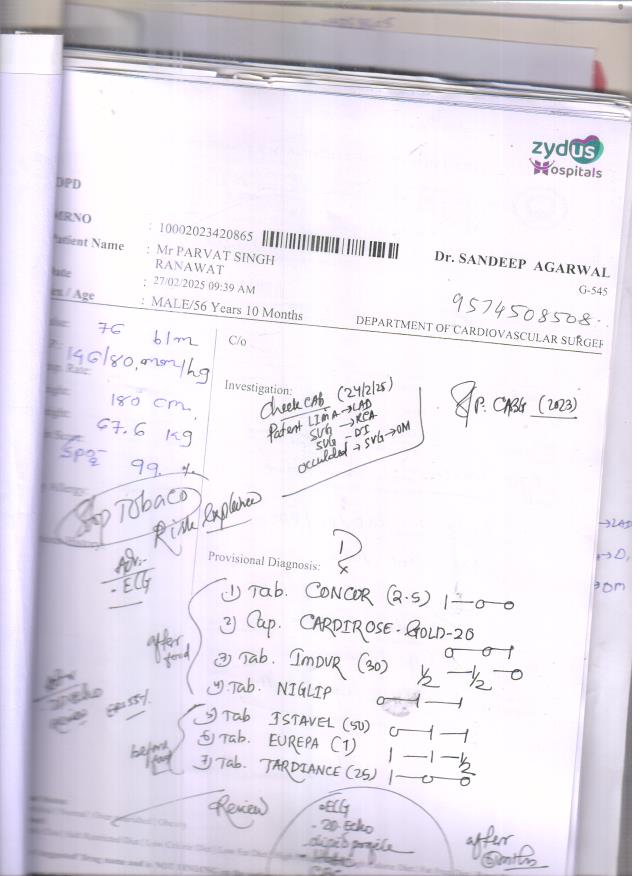 zydus
Hospitals
OPD
MRNO : 10002023420865
Patient Name : Mr PARVAT SINGH
RANAWAT
Date : 27/02/2025 09:39 AM
Sex / Age : MALE/56 Years 10 Months
Dr. SANDEEP AGARWAL
G-545
9574508508.
DEPARTMENT OF CARDIOVASCULAR SURGER
76 b/m
146/80, mm/hg
180 cm
67.6 kg
Spo2 99 %
C/o
Investigation:
Check CAG (24/2/25)
Patent LIMA → LAD
SVG → RCA
SVG - DI
occluded → SVG → OM
S/P. CABG (2023)
Stop Tobacco
Risk explained
Adv:-
- ECG
→ LAD
→ D,
→ OM
Provisional Diagnosis:
1) Tab. CONCOR (2.5) 1—0—0
2) Cap. CARDIROSE-GOLD-20
0—0—1
3) Tab. IMDUR (30) 1/2 — 1/2 — 0
4) Tab. NIGLIP 0—1—1
after food
5) Tab ISTAVEL (50) 0—1—1
6) Tab. EUREPA (1) 1—1—1/2
7) Tab. JARDIANCE (25) 1—0—0
before food
2D Echo
EF: 55%
Review
- ECG
- 2D Echo
- lipid profile
after
months